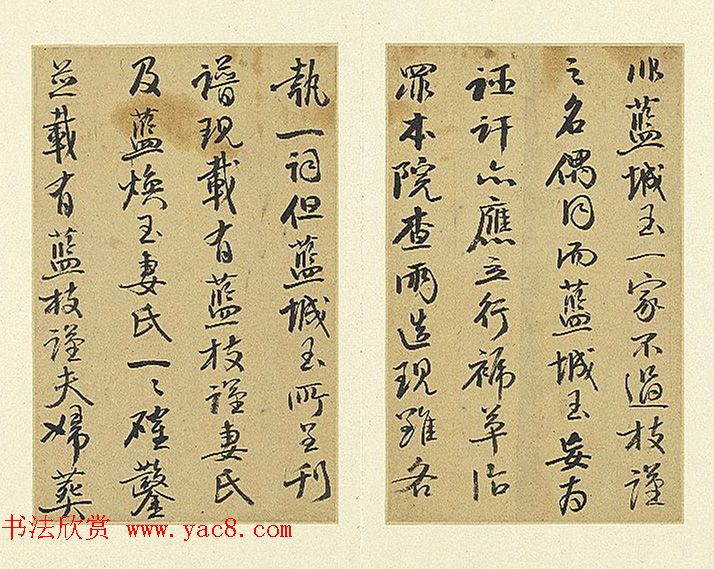 藍城玉一家不過枝謹
之名偶同而藍城玉妄為
誣訐亦應立行褫革治
罪本院查兩造現雖各
執一詞但藍城玉所呈刊
譜現載有藍枝謹妻氏
及藍煥玉妻氏一〻確鑿
並載有藍枝謹夫婦葬
书法欣赏 www.yac8.com